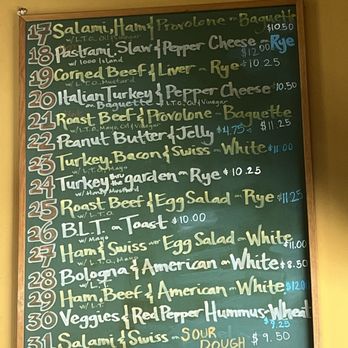 17 Salami, Ham & Provolone ~ Baguette
w/ L.T.O. Oil & Vinegar $10.50
18 Pastrami, Slaw & Pepper Cheese ~ Rye
w/ 1000 Island $12.00
19 Corned Beef & Liver ~ Rye $10.25
20 Italian Turkey & Pepper Cheese $10.50
on Baguette L.T.O. Oil & Vinegar
21 Roast Beef & Provolone ~ Baguette
w/ L.T.O. Mayo, Oil & Vinegar $11.25
22 Peanut Butter & Jelly $4.75
23 Turkey, Bacon & Swiss ~ White $11.00
w/ L.T.O. Mayo
24 Turkey the garden ~ Rye $10.25
w/ Mustard
25 Roast Beef & Egg Salad ~ Rye $11.25
w/ L.T.O.
26 B.L.T. on Toast $10.00
w/ Mayo
27 Ham & Swiss ~ Egg Salad ~ White $11.00
w/ L.T.O., Mayo
28 Bologna & American ~ White $8.50
w/ L.T.
29 Ham, Beef & American ~ White
w/ L.T.O. Mayo
30 Veggies & Red Pepper Hummus ~ Wheat
$9.25
31 Salami & Swiss ~ SOUR DOUGH $9.50